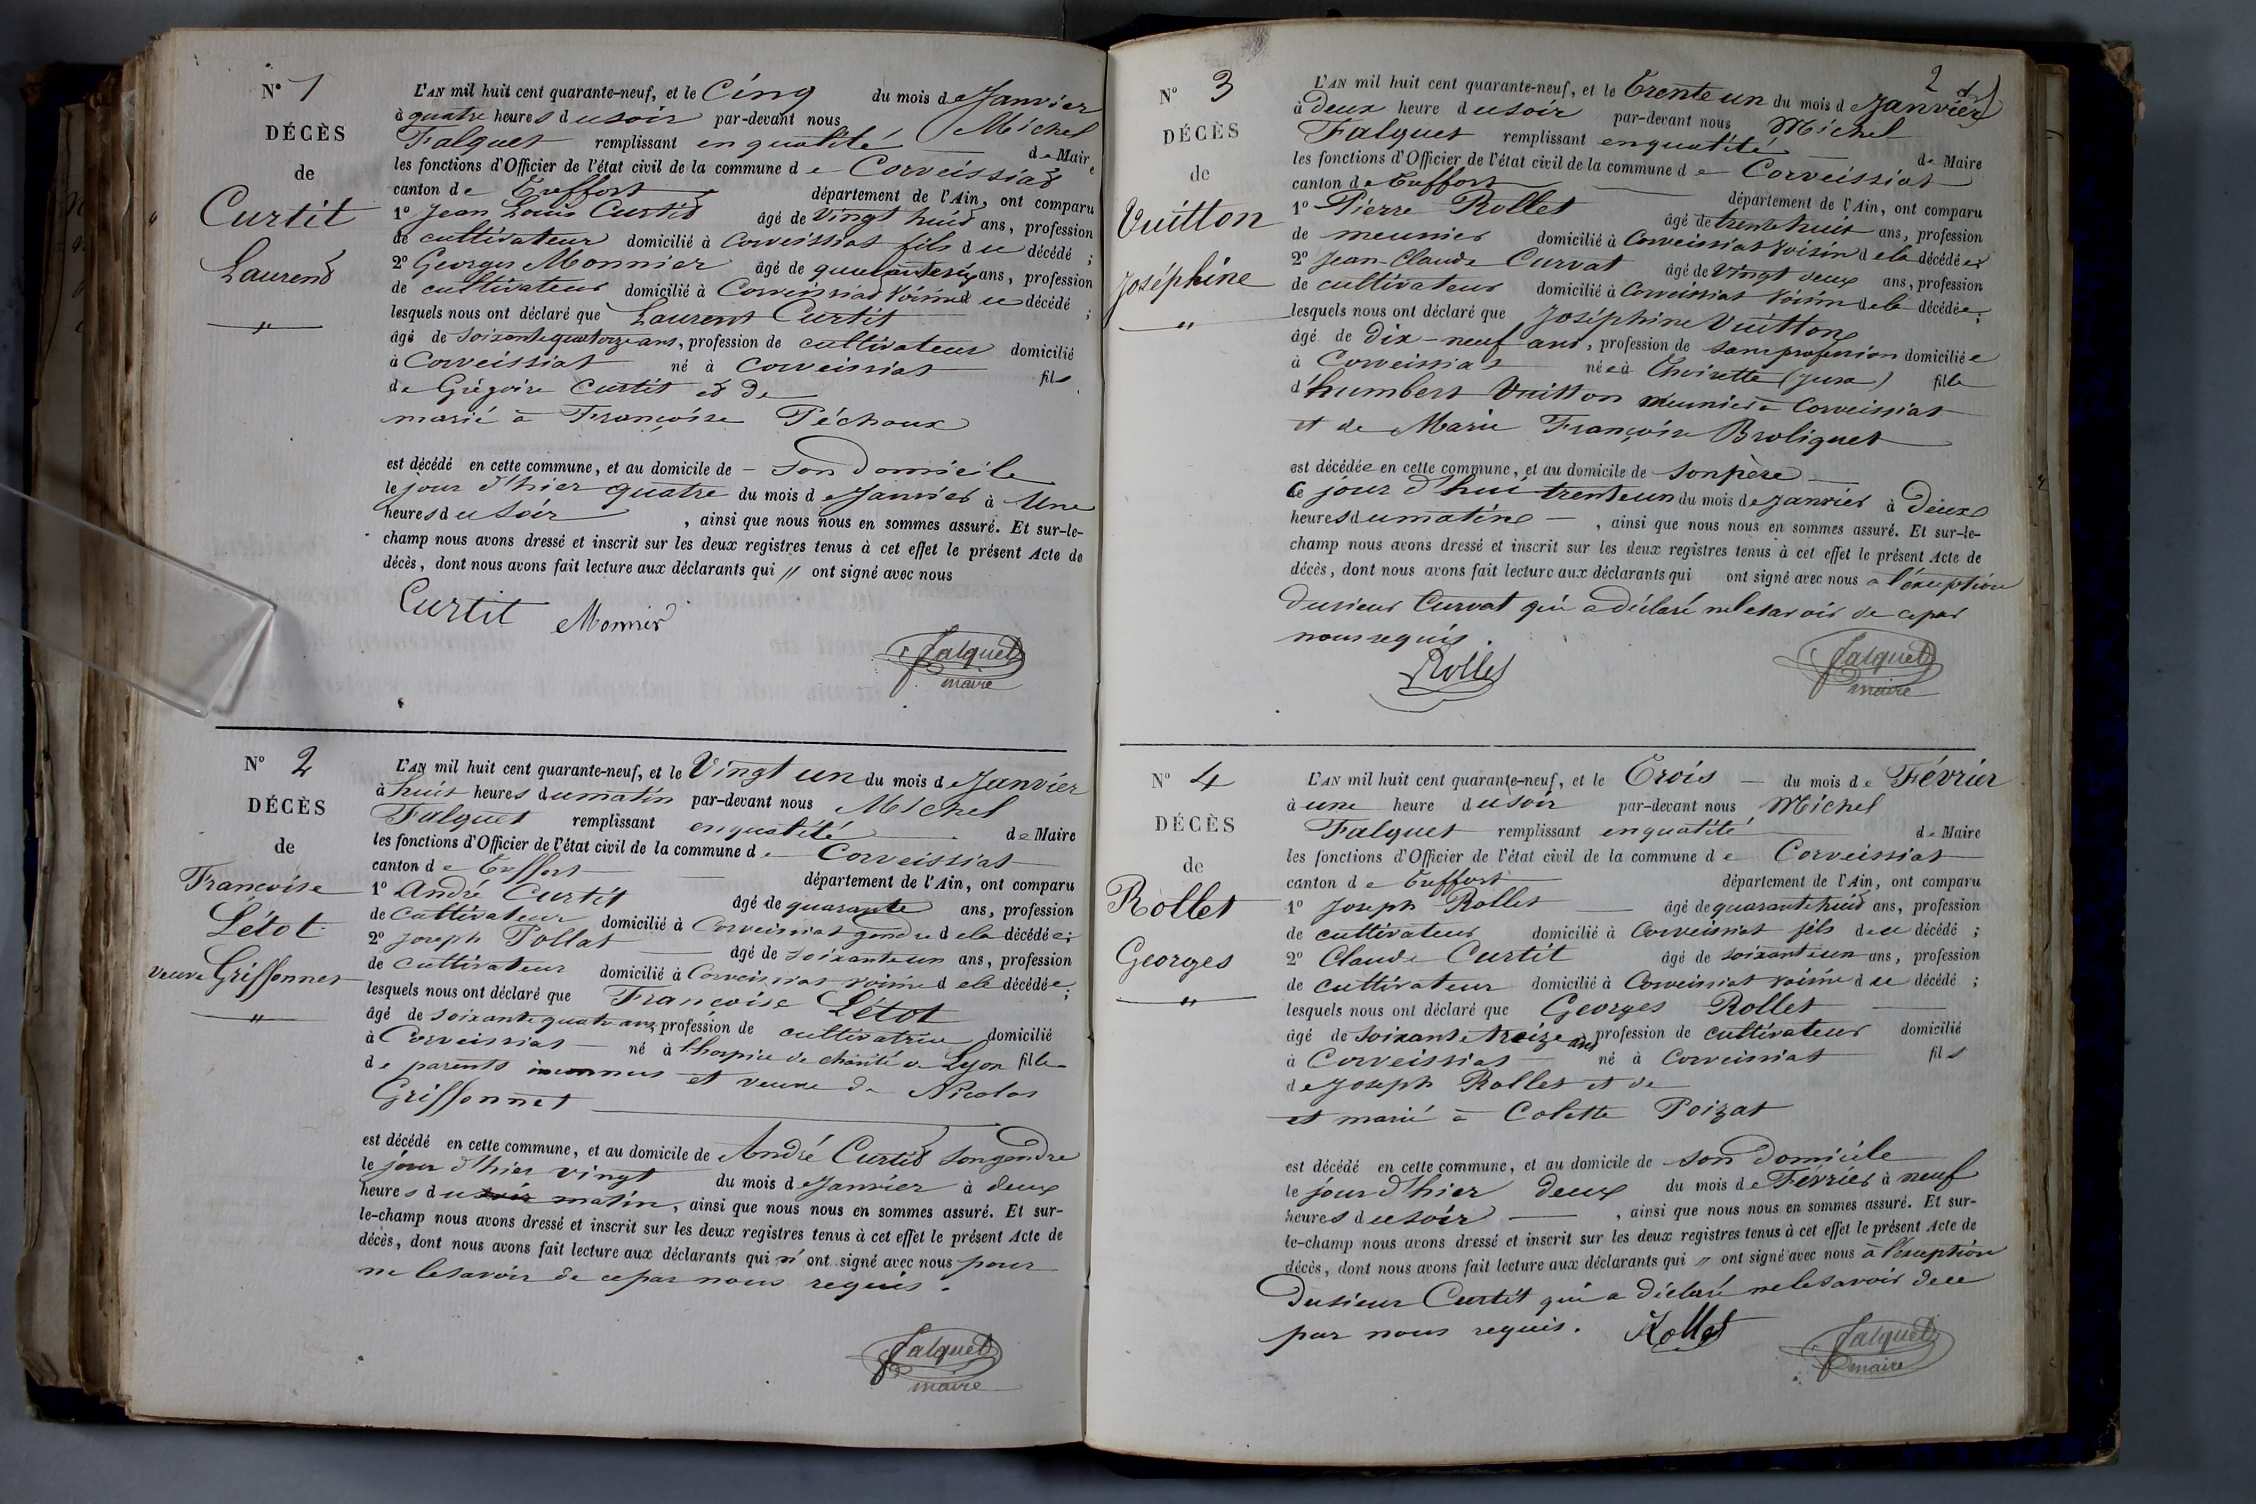 N° 1
DÉCÈS
de
Curtit
Laurent
"
L'AN mil huit cent quarante-neuf, et le Cinq du mois de Janvier
à quatre heures du soir par-devant nous Michel
Falquet remplissant en qualité de Maire
les fonctions d'Officier de l'état civil de la commune de Corveissiat
canton de Treffort département de l'Ain, ont comparu
1° Jean Louis Curtit âgé de vingt huit ans, profession
de cultivateur domicilié à Corveissiat fils du décédé ;
2° Georges Monnier âgé de quarante six ans, profession
de cultivateur domicilié à Corveissiat voisin du décédé ;
lesquels nous ont déclaré que Laurent Curtit
âgé de soixante quatorze ans, profession de cultivateur domicilié
à Corveissiat né à Corveissiat fils
de Grégoire Curtit et de
marié à Françoise Péchoux
est décédé en cette commune, et au domicile de son domicile
le jour d'hier quatre du mois de Janvier à Une
heures du soir , ainsi que nous nous en sommes assuré. Et sur-le-
champ nous avons dressé et inscrit sur les deux registres tenus à cet effet le présent Acte de
décès, dont nous avons fait lecture aux déclarants qui // ont signé avec nous
Curtit Monnier
Falquet
maire
N° 2
DÉCÈS
de
Françoise
Létot
veuve Griffonnet
"
L'AN mil huit cent quarante-neuf, et le Vingt un du mois de Janvier
à huit heures du matin par-devant nous Michel
Falquet remplissant en qualité de Maire
les fonctions d'Officier de l'état civil de la commune de Corveissiat
canton de Treffort département de l'Ain, ont comparu
1° André Curtit âgé de quarante ans, profession
de cultivateur domicilié à Corveissiat gendre de la décédée ;
2° Joseph Pollat âgé de soixante un ans, profession
de cultivateur domicilié à Corveissiat voisin de la décédée ;
lesquels nous ont déclaré que Françoise Létot
âgé de soixante quatre ans, profession de cultivatrice domicilié
à Corveissiat né à l'hospice de charité de Lyon fille
de parents inconnus et veuve de Nicolas
Griffonnet
est décédé en cette commune, et au domicile de André Curtit son gendre
le jour d'hier vingt du mois de Janvier à deux
heures du soir matin, ainsi que nous nous en sommes assuré. Et sur-
le-champ nous avons dressé et inscrit sur les deux registres tenus à cet effet le présent Acte de
décès, dont nous avons fait lecture aux déclarants qui n'ont signé avec nous pour
ne le savoir de ce par nous requis.
Falquet
maire
2
N° 3
DÉCÈS
de
Vuitton
Joséphine
"
L'AN mil huit cent quarante-neuf, et le Trente un du mois de Janvier
à Deux heure du soir par-devant nous Michel
Falquet remplissant en qualité de Maire
les fonctions d'Officier de l'état civil de la commune de Corveissiat
canton de Treffort département de l'Ain, ont comparu
1° Pierre Rollet âgé de trente huit ans, profession
de meunier domicilié à Corveissiat voisin de la décédée ;
2° Jean-Claude Curvat âgé de vingt deux ans, profession
de cultivateur domicilié à Corveissiat voisin de la décédée ;
lesquels nous ont déclaré que Joséphine Vuitton
âgé de Dix-neuf ans, profession de sans profession domiciliée
à Corveissiat née à Thoirette (Jura) fille
d'humbert Vuitton meunier à Corveissiat
et de Marie Françoise Broliquet
est décédée en cette commune, et au domicile de son père
le jour d'hui trente un du mois de Janvier à Deux
heures du matin , ainsi que nous nous en sommes assuré. Et sur-le-
champ nous avons dressé et inscrit sur les deux registres tenus à cet effet le présent Acte de
décès, dont nous avons fait lecture aux déclarants qui ont signé avec nous à l'exception
du sieur Curvat qui a déclaré ne le savoir de ce par
nous requis.
Rollet
Falquet
maire
N° 4
DÉCÈS
de
Rollet
Georges
"
L'AN mil huit cent quarante-neuf, et le Trois du mois de Février
à une heure du soir par-devant nous Michel
Falquet remplissant en qualité de Maire
les fonctions d'Officier de l'état civil de la commune de Corveissiat
canton de Treffort département de l'Ain, ont comparu
1° Joseph Rollet âgé de quarante huit ans, profession
de cultivateur domicilié à Corveissiat fils du décédé ;
2° Claude Curtit âgé de soixante un ans, profession
de cultivateur domicilié à Corveissiat voisin du décédé ;
lesquels nous ont déclaré que Georges Rollet
âgé de soixante treize ans profession de cultivateur domicilié
à Corveissiat né à Corveissiat fils
de Joseph Rollet et de
et marié à Colette Poizat
est décédé en cette commune, et au domicile de son domicile
le jour d'hier deux du mois de Février à neuf
heures du soir , ainsi que nous nous en sommes assuré. Et sur-
le-champ nous avons dressé et inscrit sur les deux registres tenus à cet effet le présent Acte de
décès, dont nous avons fait lecture aux déclarants qui // ont signé avec nous à l'exception
du sieur Curtit qui a déclaré ne le savoir de ce
par nous requis. Rollet
Falquet
maire